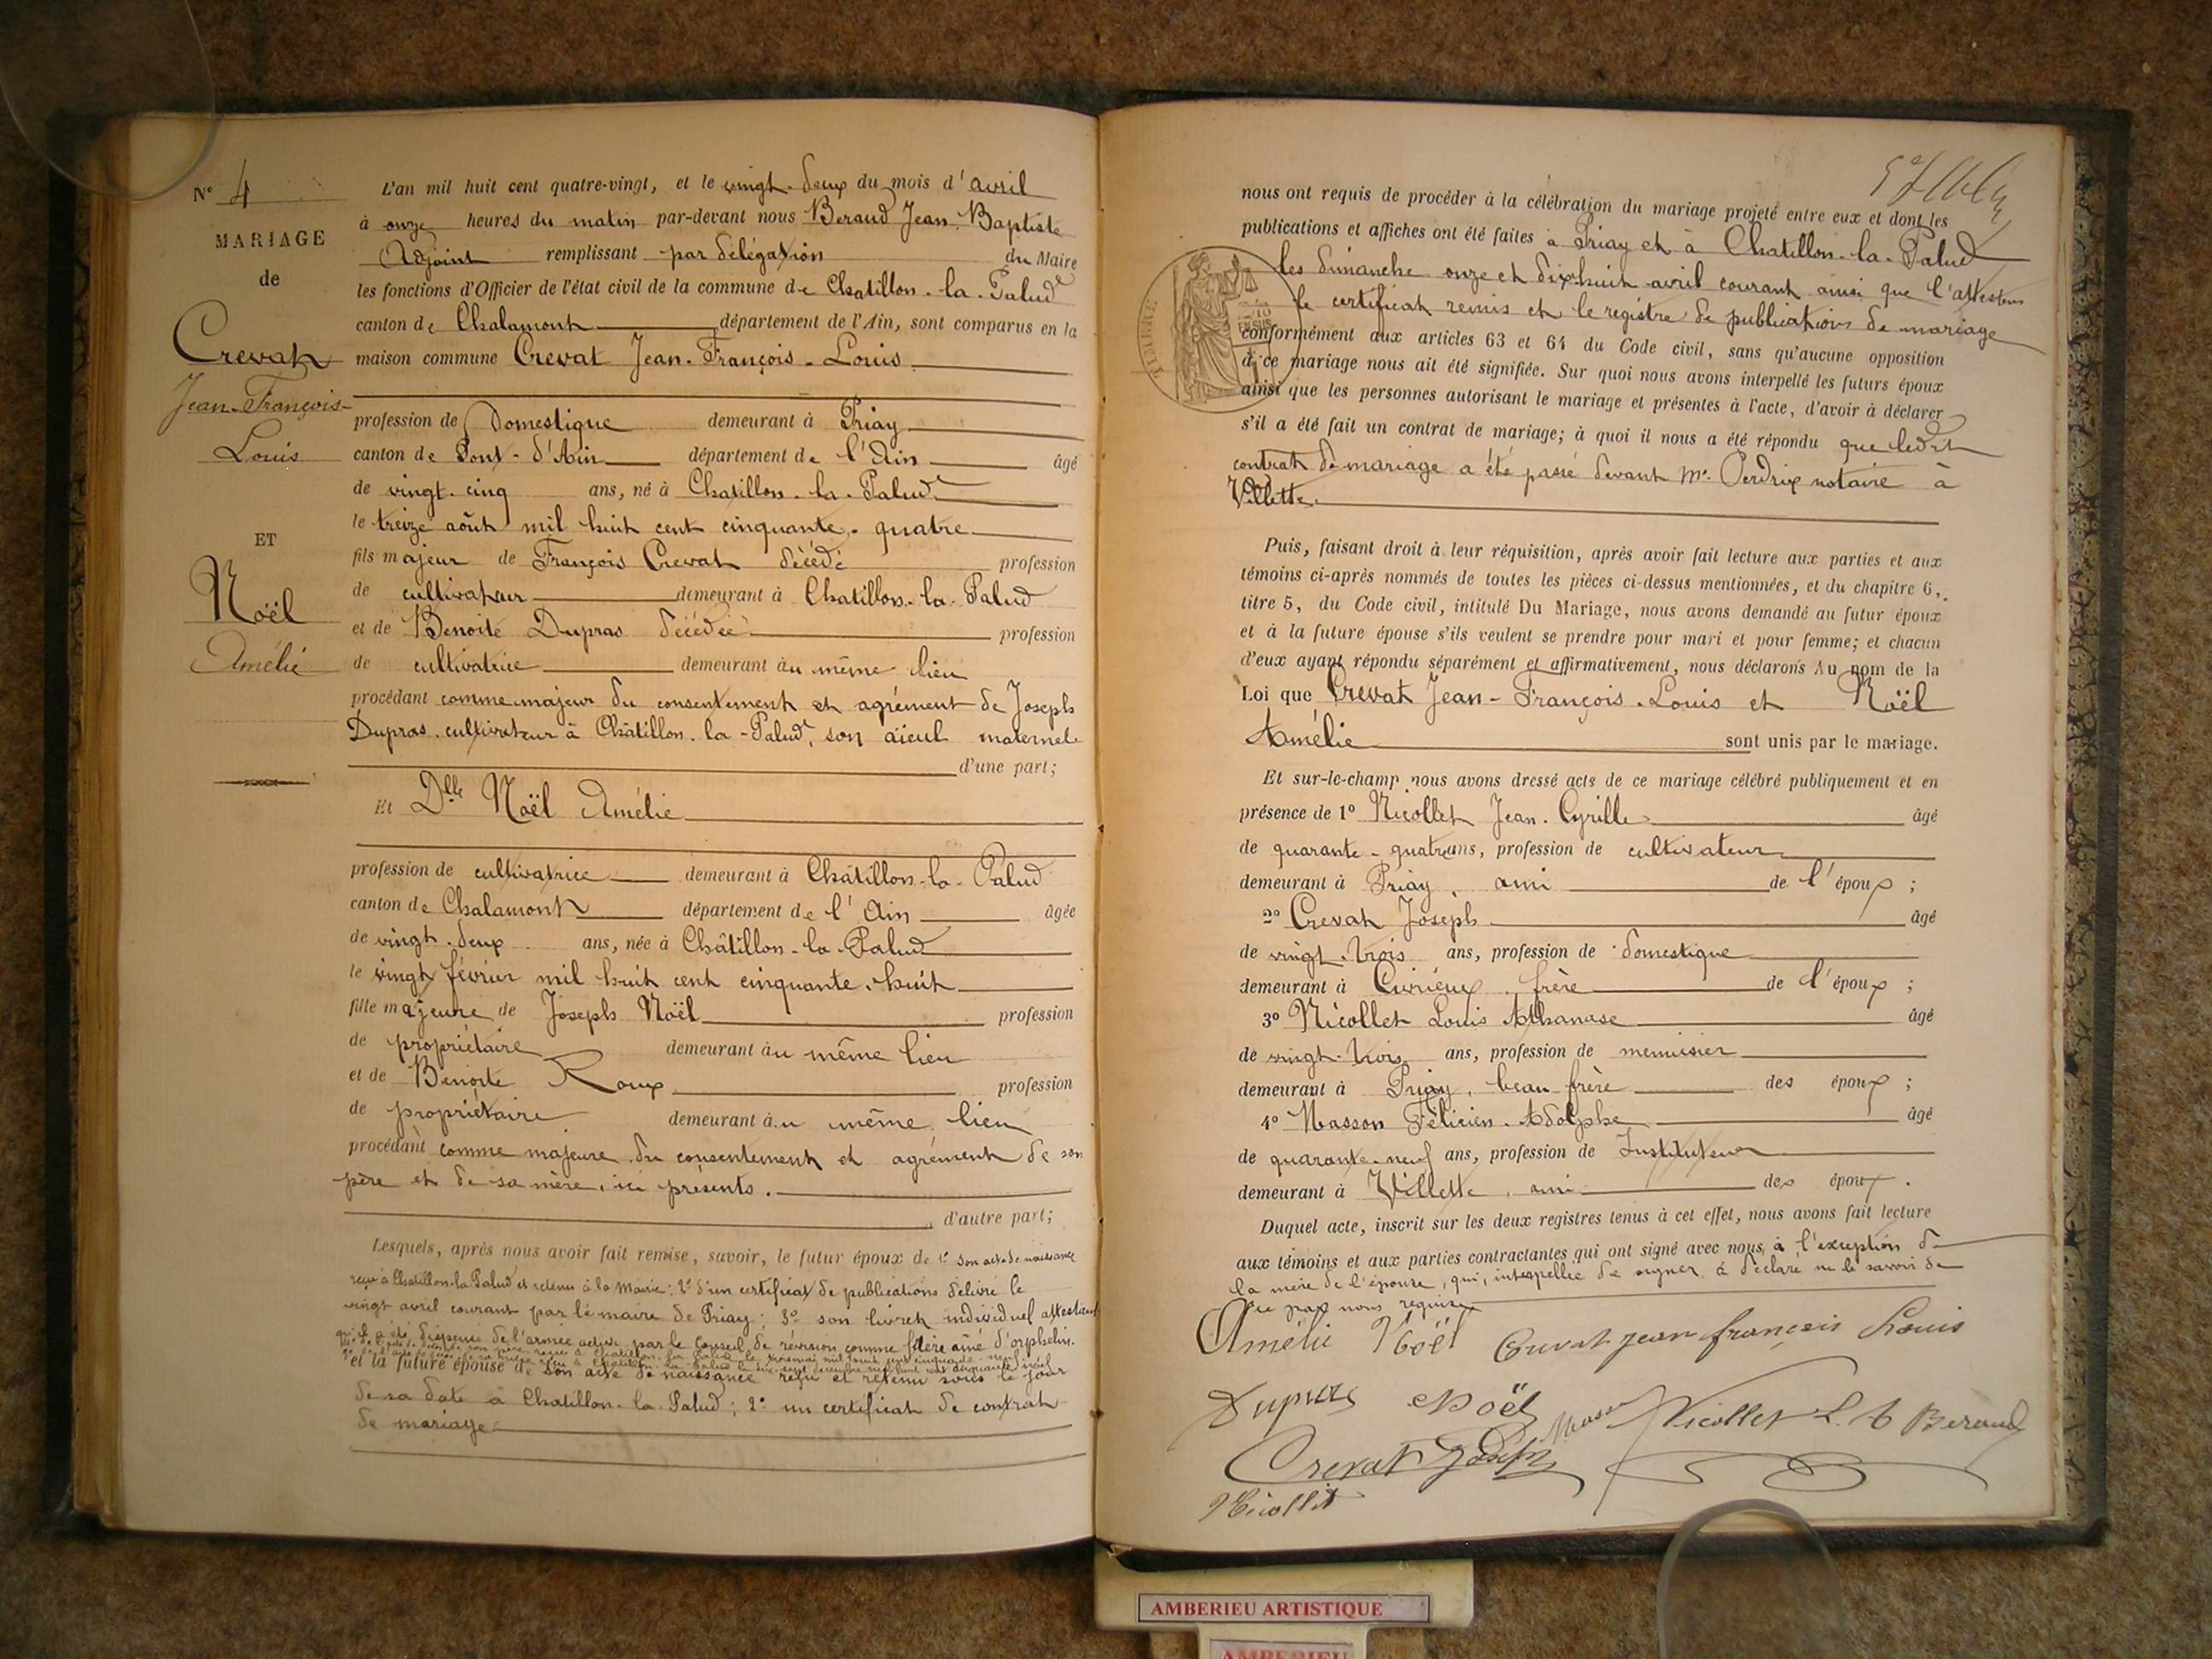 N° 4
MARIAGE
de
Crevat
Jean-François-
Louis
ET
Noël
Amélie
L'an mil huit cent quatre-vingt, et le vingt-deux du mois d'avril
à onze heures du matin par-devant nous Beraud Jean-Baptiste
Adjoint remplissant par délégation du Maire
les fonctions d'Officier de l'état civil de la commune de Chatillon-la-Palud
canton de Chalamont département de l'Ain, sont comparus en la
maison commune Crevat Jean-François-Louis
profession de Domestique demeurant à Priay
canton de Pont-d'Ain département de l'Ain âgé
de vingt-cinq ans, né à Chatillon-la-Palud
le treize août mil huit cent cinquante-quatre
fils majeur de François Crevat décédé profession
de cultivateur demeurant à Chatillon-la-Palud
et de Benoite Dupras décédée profession
de cultivatrice demeurant au même lieu
procédant comme majeur du consentement et agrément de Joseph
Dupras cultivateur à Châtillon-la-Palud, son aïeul maternel
d'une part;
Et Dlle Noël Amélie
profession de cultivatrice demeurant à Châtillon-la-Palud
canton de Chalamont département de l'Ain âgée
de vingt-deux ans, née à Châtillon-la-Palud
le vingt février mil huit cent cinquante-huit
fille majeure de Joseph Noël profession
de propriétaire demeurant au même lieu
et de Benoite Roux profession
de propriétaire demeurant au même lieu
procédant comme majeure du consentement et agrément de son
père et de sa mère, ici présents.
d'autre part;
Lesquels, après nous avoir fait remise, savoir, le futur époux de 1° son acte de naissance
reçu à Chatillon-la-Palud et retenu à la Mairie; 2° d'un certificat de publications délivré le
vingt avril courant par le maire de Priay; 3° son livret individuel attestant
qu'il a été dispensé de l'armée active par le Conseil de révision comme frère aîné d'orphelin.
et la future épouse de son acte de naissance reçu et retenu sous le jour
de sa date à Chatillon-la-Palud; 2° un certificat de contrat
de mariage
nous ont requis de procéder à la célébration du mariage projeté entre eux et dont les
publications et affiches ont été faites à Priay et à Chatillon-la-Palud
les dimanche onze et dix huit avril courant ainsi que l'attestent
le certificat remis et le registre de publications de mariage
conformément aux articles 63 et 64 du Code civil, sans qu'aucune opposition
à ce mariage nous ait été signifiée. Sur quoi nous avons interpellé les futurs époux
ainsi que les personnes autorisant le mariage et présentes à l'acte, d'avoir à déclarer
s'il a été fait un contrat de mariage; à quoi il nous a été répondu que ledit
contrat de mariage a été passé devant Me Perdrix notaire à
Villette.
Puis, faisant droit à leur réquisition, après avoir fait lecture aux parties et aux
témoins ci-après nommés de toutes les pièces ci-dessus mentionnées, et du chapitre 6,
titre 5, du Code civil, intitulé Du Mariage, nous avons demandé au futur époux
et à la future épouse s'ils veulent se prendre pour mari et pour femme; et chacun
d'eux ayant répondu séparément et affirmativement, nous déclarons Au nom de la
Loi que Crevat Jean-François-Louis et Noël
Amélie sont unis par le mariage.
Et sur-le-champ nous avons dressé acte de ce mariage célébré publiquement et en
présence de 1° Nicollet Jean-Cyrille âgé
de quarante-quatre ans, profession de cultivateur
demeurant à Priay, ami de l'époux;
2° Crevat Joseph âgé
de vingt-trois ans, profession de domestique
demeurant à Curieux, frère de l'époux;
3° Nicollet Louis Athanase âgé
de vingt-trois ans, profession de menuisier
demeurant à Priay, beau frère des époux;
4° Masson Félicien-Adolphe âgé
de quarante-neuf ans, profession de Instituteur
demeurant à Villette, ami des époux.
Duquel acte, inscrit sur les deux registres tenus à cet effet, nous avons fait lecture
aux témoins et aux parties contractantes qui ont signé avec nous, à l'exception de
la mère de l'épouse, qui, interpellée de signer a déclaré ne le savoir de
ce par nous requise
Amélie Noël Crevat jean françois Louis
Dupras Noël Masson Nicollet L. A Beraud
Crevat Joseph
Nicollet
AMBERIEU ARTISTIQUE
AMBERIEU